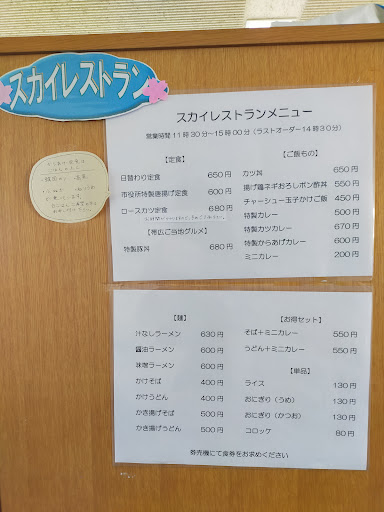 スカイレストラン
スカイレストランメニュー
営業時間11時30分〜15時00分（ラストオーダー14時30分）
【定食】
日替わり定食 650円
市役所特製唐揚げ定食 600円
ロースカツ定食 680円
【帯広ご当地グルメ】
特製豚丼 680円
【ご飯もの】
カツ丼 650円
揚げ鶏ネギおろしポン酢丼 550円
チャーシュー玉子かけご飯 450円
特製カレー 500円
特製カツカレー 670円
特製からあげカレー 600円
ミニカレー 200円
【麺】
汁なしラーメン 630円
醤油ラーメン 600円
味噌ラーメン 600円
かけそば 400円
かけうどん 400円
かき揚げそば 500円
かき揚げうどん 500円
【お得セット】
そば＋ミニカレー 550円
うどん＋ミニカレー 550円
【単品】
ライス 130円
おにぎり（うめ） 130円
おにぎり（かつお） 130円
コロッケ 80円
券売機にて食券をお求めください